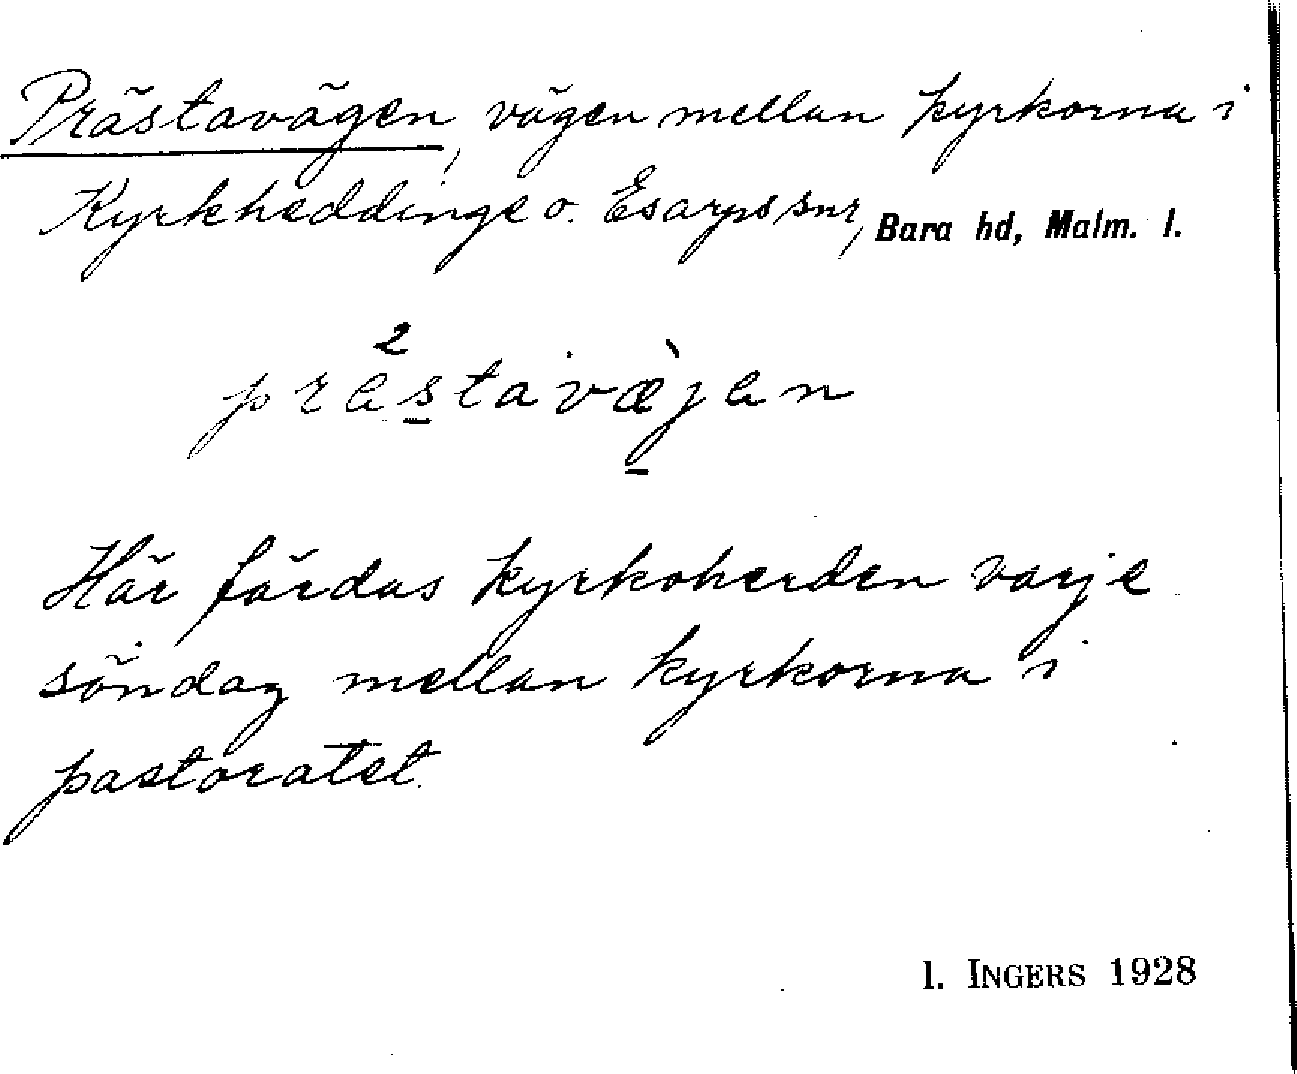 Prästavägen, vägen mellan kyrkorna i
Kyrkheddinge o. Esarps snr, Bara hd, Malm. l.
prästavæ̀jen
Här färdas kyrkoherden varje
söndag mellan kyrkorna i
pastoratet.
I. INGERS 1928